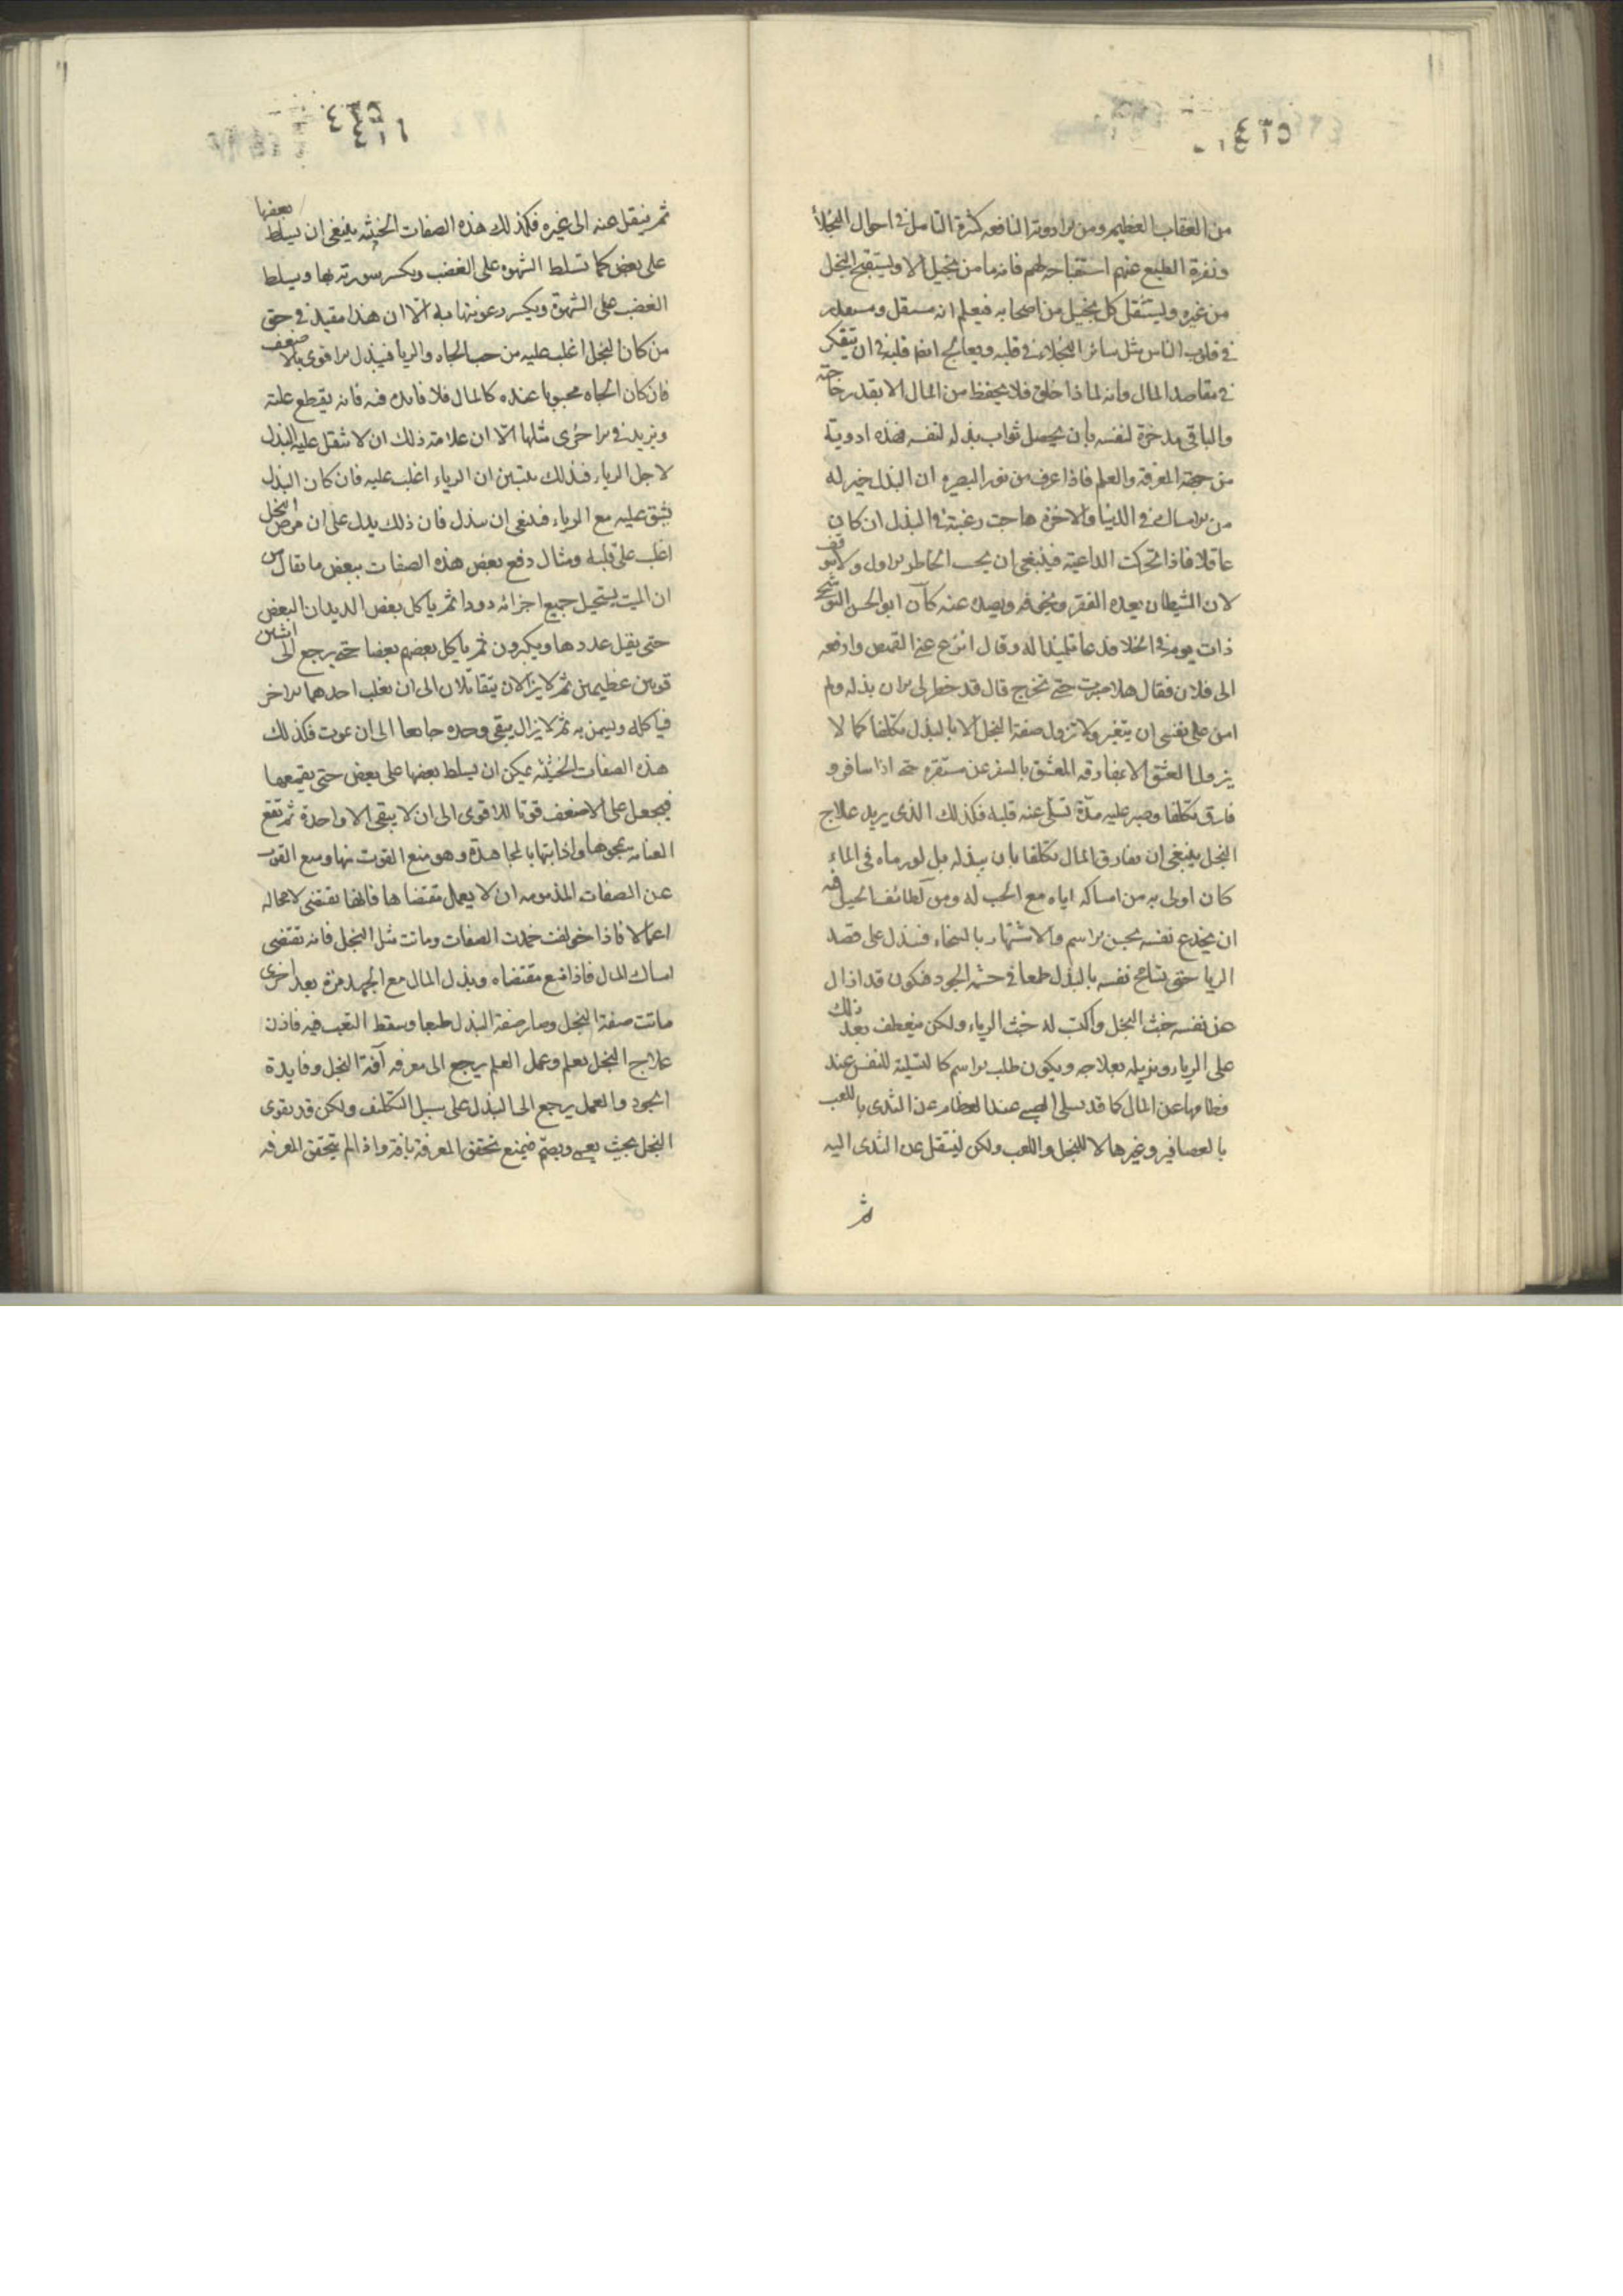 ٤٣٥
من العقاب العظيم ومن الادوية النافعه كثرة التامل فى احوال البخلاء
ونفرة الطبع عنهم استقباحه لهم فانه ما من بخيل الا ويستقبح البخل
من غيره ويستثقل كل بخيل من اصحابه فيعلم انه مستثقل ومستقذر
فى قلوب الناس مثل سائر البخلاء فى قلبه ويعالج ايضا قلبه فى ان يتفكر
فى مقاصد المال وانه لماذا خلق فلا يحفظ من المال الا بقدر حاجته
والباقى يدخره لنفسه بأن يحصل ثواب بذله لنفسه فهذه ادوية
من جهة المعرفة والعلم فاذا عرف من نور البصيره ان البذل خير له
من الامساك فى الدنيا والاخره هاجت رغبته فى البذل ان كان
عاقلا فاذا تحركت الداعية فينبغى ان يجيب الخاطر الاول ولا يتوقف
لان الشيطان يعده الفقر ويخوفه ويصده عنه كان ابو الحسن البوشنجى
ذات يوم فى الخلا فدعا تلميذا له وقال انزع عنى القميص وادفعه
الى فلان فقال هلا صبرت حتى تخرج قال قد خطر لى الان بذله ولم
امن على نفسى ان يتغير ولا تزول صفة البخل الا بالبذل تكلفا كما لا
يزول العشق الا بمفارقه المعشوق بالسفر عن مستقره حتى اذا سافر و
فارق تكلفا وصبر عليه مدة تسلى عنه قلبه فكذلك الذى يريد علاج
البخل ينبغى ان يفارق المال تكلفا بان يبذله بل لو رماه فى الماء
كان اولى به من امساكه اياه مع الحب له ومن لطائف الحيل فيه
ان يخدع نفسه بحسن الاسم والاشتهار بالسخاء فيبذل على قصد
الريا حتى تسامح نفسه بالبذل طمعا فى حشمة الجود فيكون قد ازال
عن نفسه خبث البخل واكتسب له خبث الرياء ولكن ينعطف بعد ذلك
على الرياء ويزيله بعلاجه ويكون طلب الاسم كالتسلية للنفس عند
فطامها عن المال كما قد يسلى الصبى عند الفطام عن الثدى باللعب
بالعصافير وغيرها لا للبخل واللعب ولكن لينتقل عن الثدى اليه
ثم
٤٣٥
ثم ينقل عنه الى غيره فكذلك هذه الصفات الخبيثه ينبغى ان يسلط بعضها
على بعض كما تسلط الشهوه على الغضب ويكسر سورته بها ويسلط
الغضب على الشهوة ويكسر رعونتها به الا ان هذا مفيد فى حق
من كان البخل اغلب عليه من حب الجاه والريا فيبذل الاقوى بالاضعف
فان كان الجاه محبوبا عنده كالمال فلا فايده فيه فانه يقطع علته
ويزيد فى الاخرى مثلها الا ان علامة ذلك ان لا يثقل عليه البذل
لاجل الرياء فبذلك يتبين ان الرياء اغلب عليه فان كان البذل
يشق عليه مع الرياء فينبغى ان يبذل فان ذلك يدل على ان مرض البخل
اغلب على قلبه ومثال دفع بعض هذه الصفات ببعض ما يقال من
ان الميت يستحيل جميع اجزائه دودا ثم ياكل بعض الديدان البعض
حتى يقل عددها ويكبرون ثم ياكل بعضهم بعضا حتى يرجع الى اثنين
قويين عظيمين ثم لا يزالان يتقاتلان الى ان يغلب احدهما الاخر
فياكله ويسمن به ثم لا يزال يبقى وحده جايعا الى ان يموت فكذلك
هذه الصفات الخبيثه يمكن ان يسلط بعضها على بعض حتى يقمعها
فيجعل على الاضعف قوتا للاقوى الى ان لا يبقى الا واحدة ثم تقع
العنايه بمحوها واذابتها بالمجاهدة وهو منع القوت عنها ومنع القوت
عن الصفات المذمومه ان لا يعمل بمقتضاها فانها تقتضى لا محاله
اعمالا فاذا خولفت خمدت الصفات وماتت مثل البخل فانه يقتضى
امساك المال فاذا منع مقتضاه وبذل المال مع الجهد مرة بعد اخرى
ماتت صفة البخل وصار صفة البذل طبعا وسقط التعب فيه فاذن
علاج البخل بعلم وعمل العلم يرجع الى معرفه آفة البخل وفايدة
الجود والعمل يرجع الى البذل على سبيل التكلف ولكن قد يقوى
البخل بحيث يعمى ويصم فيمنع تحقق المعرفة بافته واذا لم يتحقق المعرفه